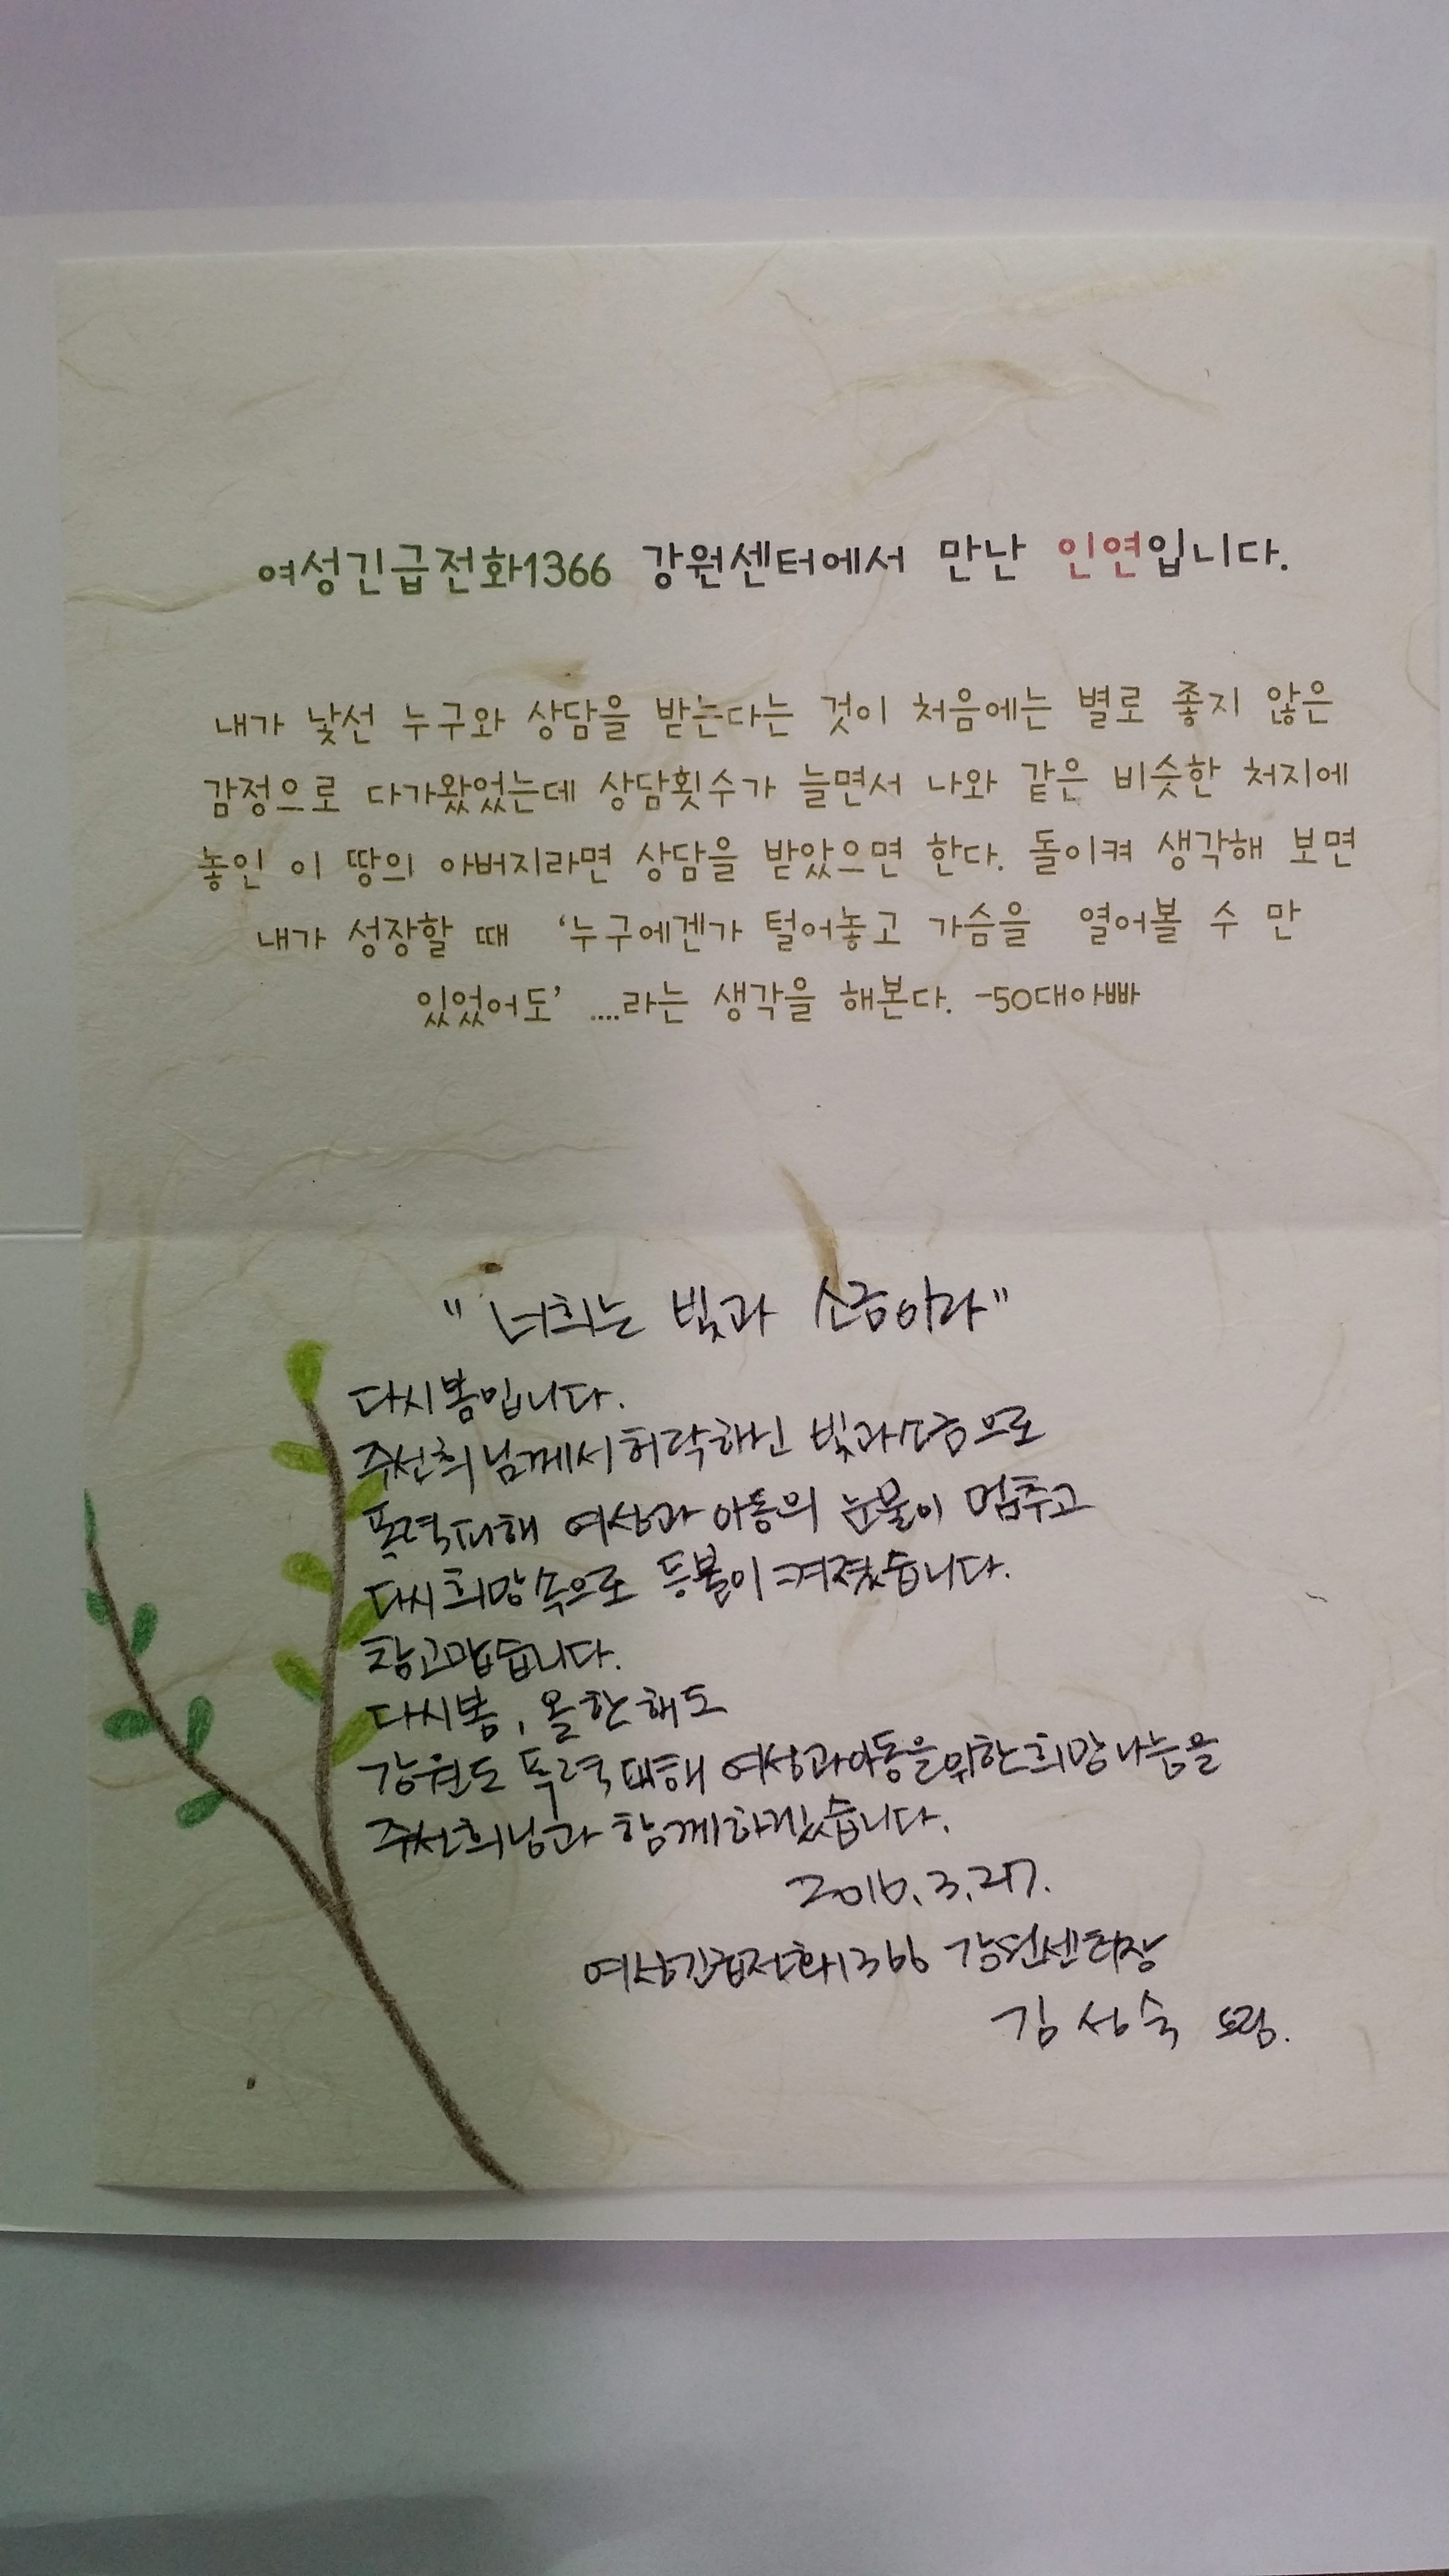 여성긴급전화1366 강원센터에서 만난 인연입니다.
내가 낯선 누구와 상담을 받는다는 것이 처음에는 별로 좋지 않은
감정으로 다가왔었는데 상담횟수가 늘면서 나와 같은 비슷한 처지에
놓인 이 땅의 아버지라면 상담을 받았으면 한다. 돌이켜 생각해 보면
내가 성장할 때 '누구에겐가 털어놓고 가슴을 열어볼 수 만
있었어도' ....라는 생각을 해본다. -50대아빠
"너희는 빛과 소금이라"
다시봄입니다.
주선희님께서허락하신 빛과소금으로
폭력피해 여성과 아동의 눈물이 멈추고
다시희망속으로 등불이켜졌습니다.
참고맙습니다.
다시봄, 올한해도
강원도 폭력피해 여성과아동을위한희망나눔을
주선희님과 함께하겠습니다.
2016.3.27.
여성긴급전화1366 강원센터장
김성숙 드림.